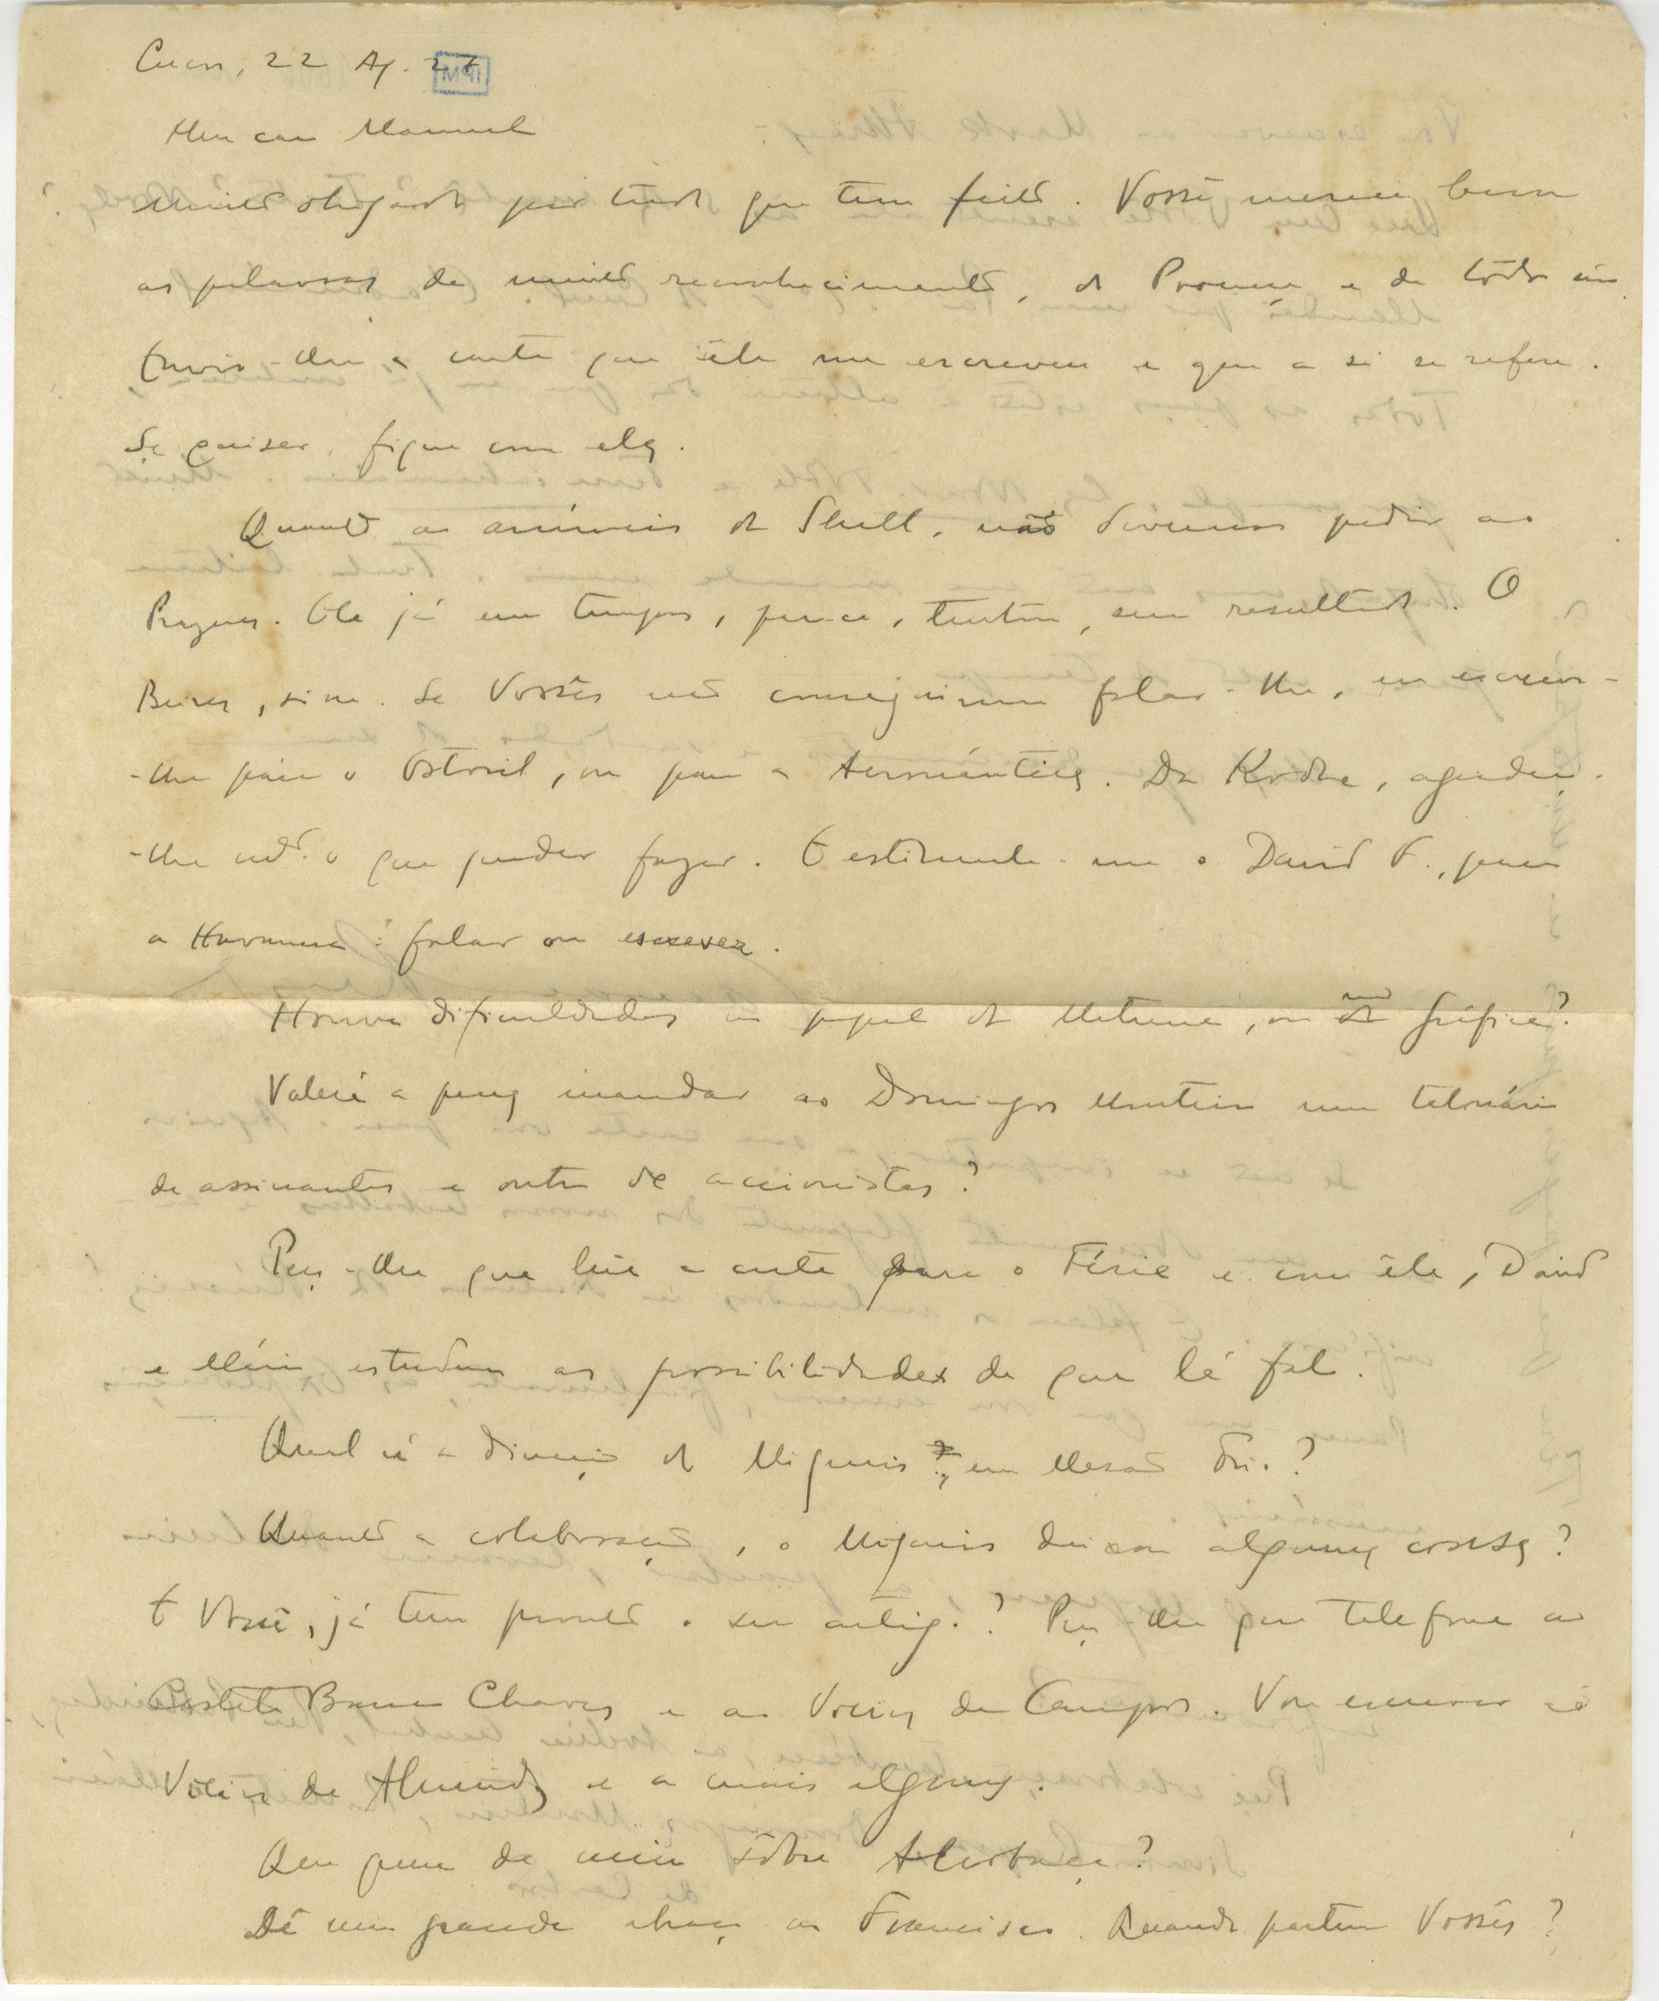 22 Ag. 27
MΨI
Meu caro Manuel
Muito obrigado por tudo que tem feito. Você merece bem
as palavras de muito reconhecimento, do Proença e de todos nós.
Envio-lhe a carta que êle me escreveu e que a si se refere.
Se quiser, fique com ela.
Quanto ao anúncio da Shell, não devemos pedir ao
Prazeres. Êle já em tempos, parece, tentou, sem resultado. O
sim. Se Vocês não conseguirem falar-lhe, eu escrevo-
-lhe para o Estoril, ou para a Aeronáutica. Da Kodak, agradeço-
-lhe o que puder fazer. E estimule-me o David F., para
a Havaneza: falar ou escrever.
Houve dificuldades no papel do ou na gráfica?
Valerá a pena mandar ao Domingos Monteiro um talonário
de assinantes e outro de accionistas?
Peço-lhe que leia a carta para o Fério e com êle, David
e Mário estudem as possibilidades de que lá falo.
Qual é a direcção do Migueis, em
Quanto a colaboração, o Migueis deixou alguma cousa?
E Você, já tem pronto o seu artigo? Peço-lhe que telefone ao
Castelo Branco Chaves e ao Vieira de Campos. Vou escrever ao
Vieira de Almeida e a mais alguns.
Que pensa de mim sôbre
Dê um grande abraço ao Francisco. Quando partem Vocês?